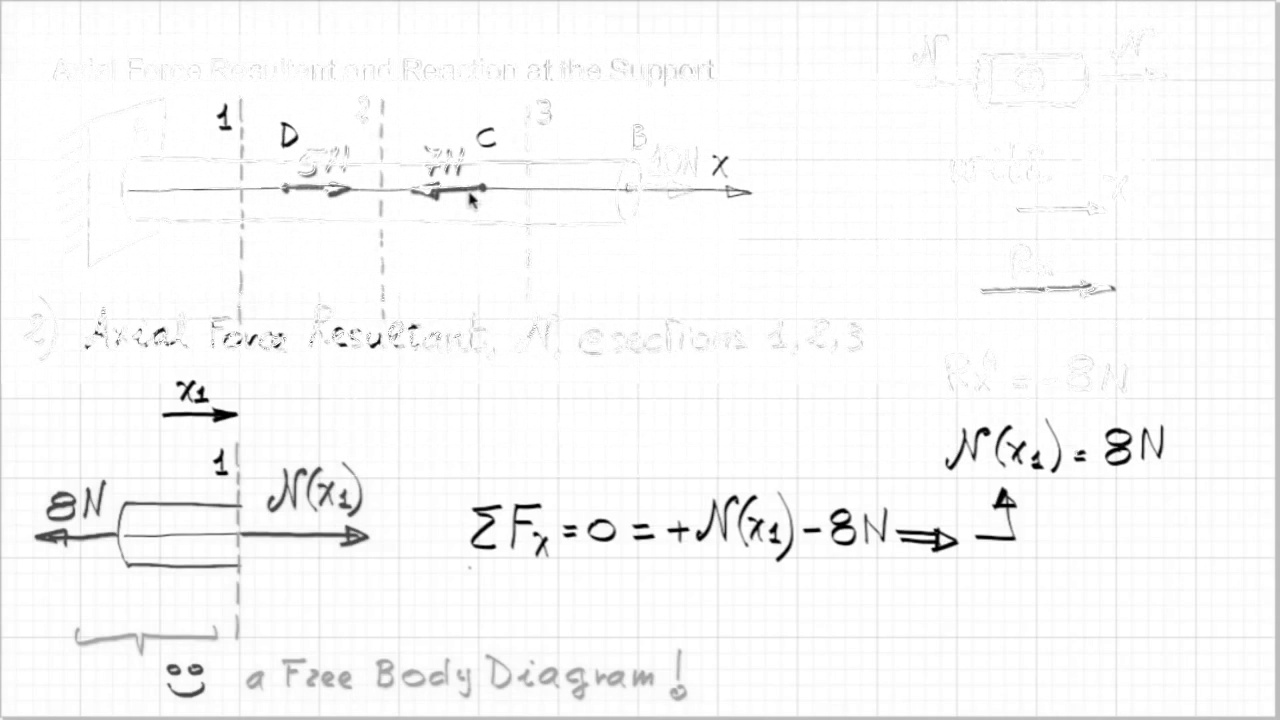 Axial Force Resultant and Reaction at the Support
1 2 3
D C B
5N 7N 10N x
N N
x
2) Axial Force Resultant, N, @ sections 1, 2, 3
Rx = -8N
x1
N(x1) = 8N
1
8N N(x1)
ΣFx = 0 = +N(x1) - 8N ⇒
a Free Body Diagram!